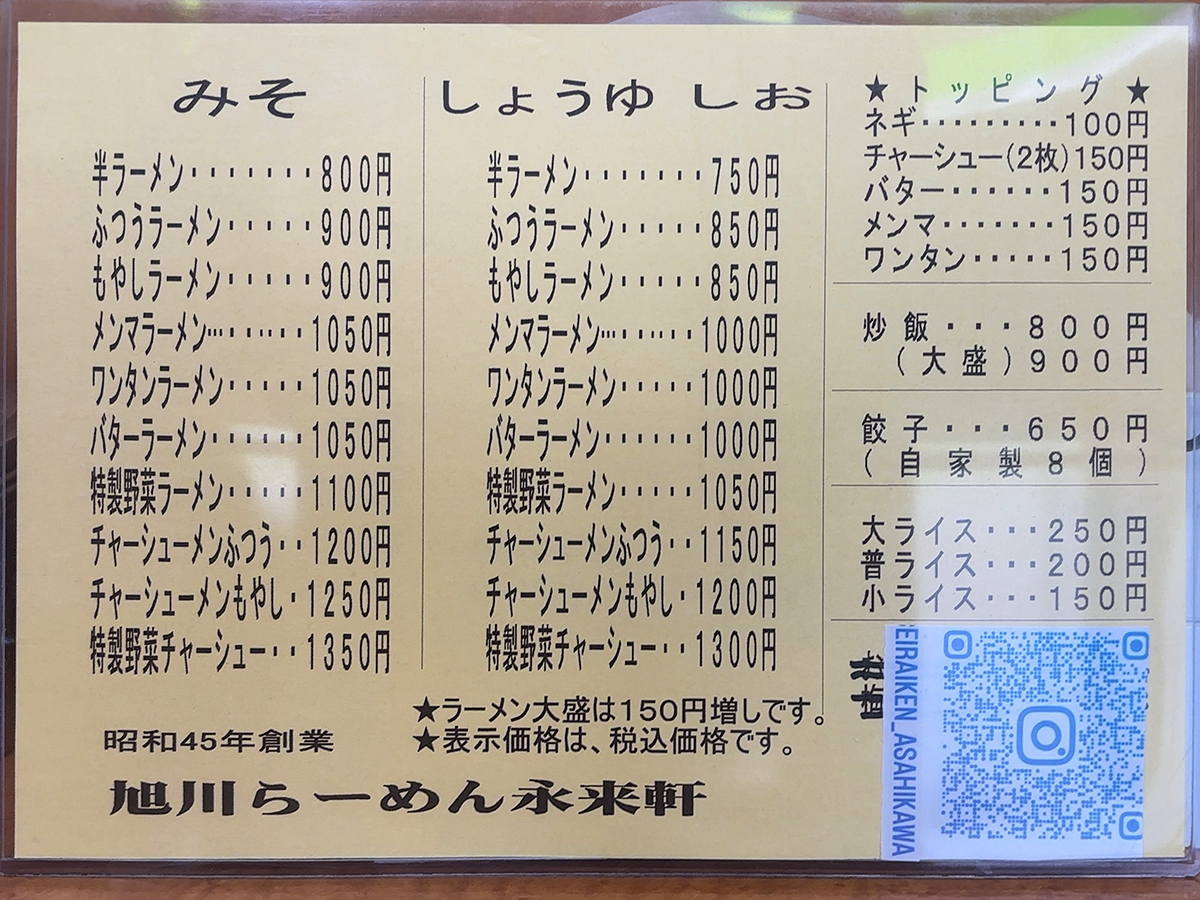 みそ
半ラーメン・・・・・・・800円
ふつうラーメン・・・・・900円
もやしラーメン・・・・・900円
メンマラーメン…・・・・・1050円
ワンタンラーメン・・・・・1050円
バターラーメン・・・・・・1050円
特製野菜ラーメン・・・・・1100円
チャーシューメンふつう・・1200円
チャーシューメンもやし・1250円
特製野菜チャーシュー・・1350円
しょうゆ しお
半ラーメン・・・・・・・750円
ふつうラーメン・・・・・850円
もやしラーメン・・・・・850円
メンマラーメン…・・・・・1000円
ワンタンラーメン・・・・・1000円
バターラーメン・・・・・・1000円
特製野菜ラーメン・・・・・1050円
チャーシューメンふつう・・1150円
チャーシューメンもやし・1200円
特製野菜チャーシュー・・1300円
★トッピング★
ネギ・・・・・・・・・100円
チャーシュー(2枚)150円
バター・・・・・・150円
メンマ・・・・・・・150円
ワンタン・・・・・150円
炒飯・・・800円
(大盛)900円
餃子・・・650円
(自家製8個)
大ライス・・・250円
普ライス・・・200円
小ライス・・・150円
★ラーメン大盛は150円増しです。
★表示価格は、税込価格です。
昭和45年創業
旭川らーめん永来軒
EIRAIKEN_ASAHIKAWA